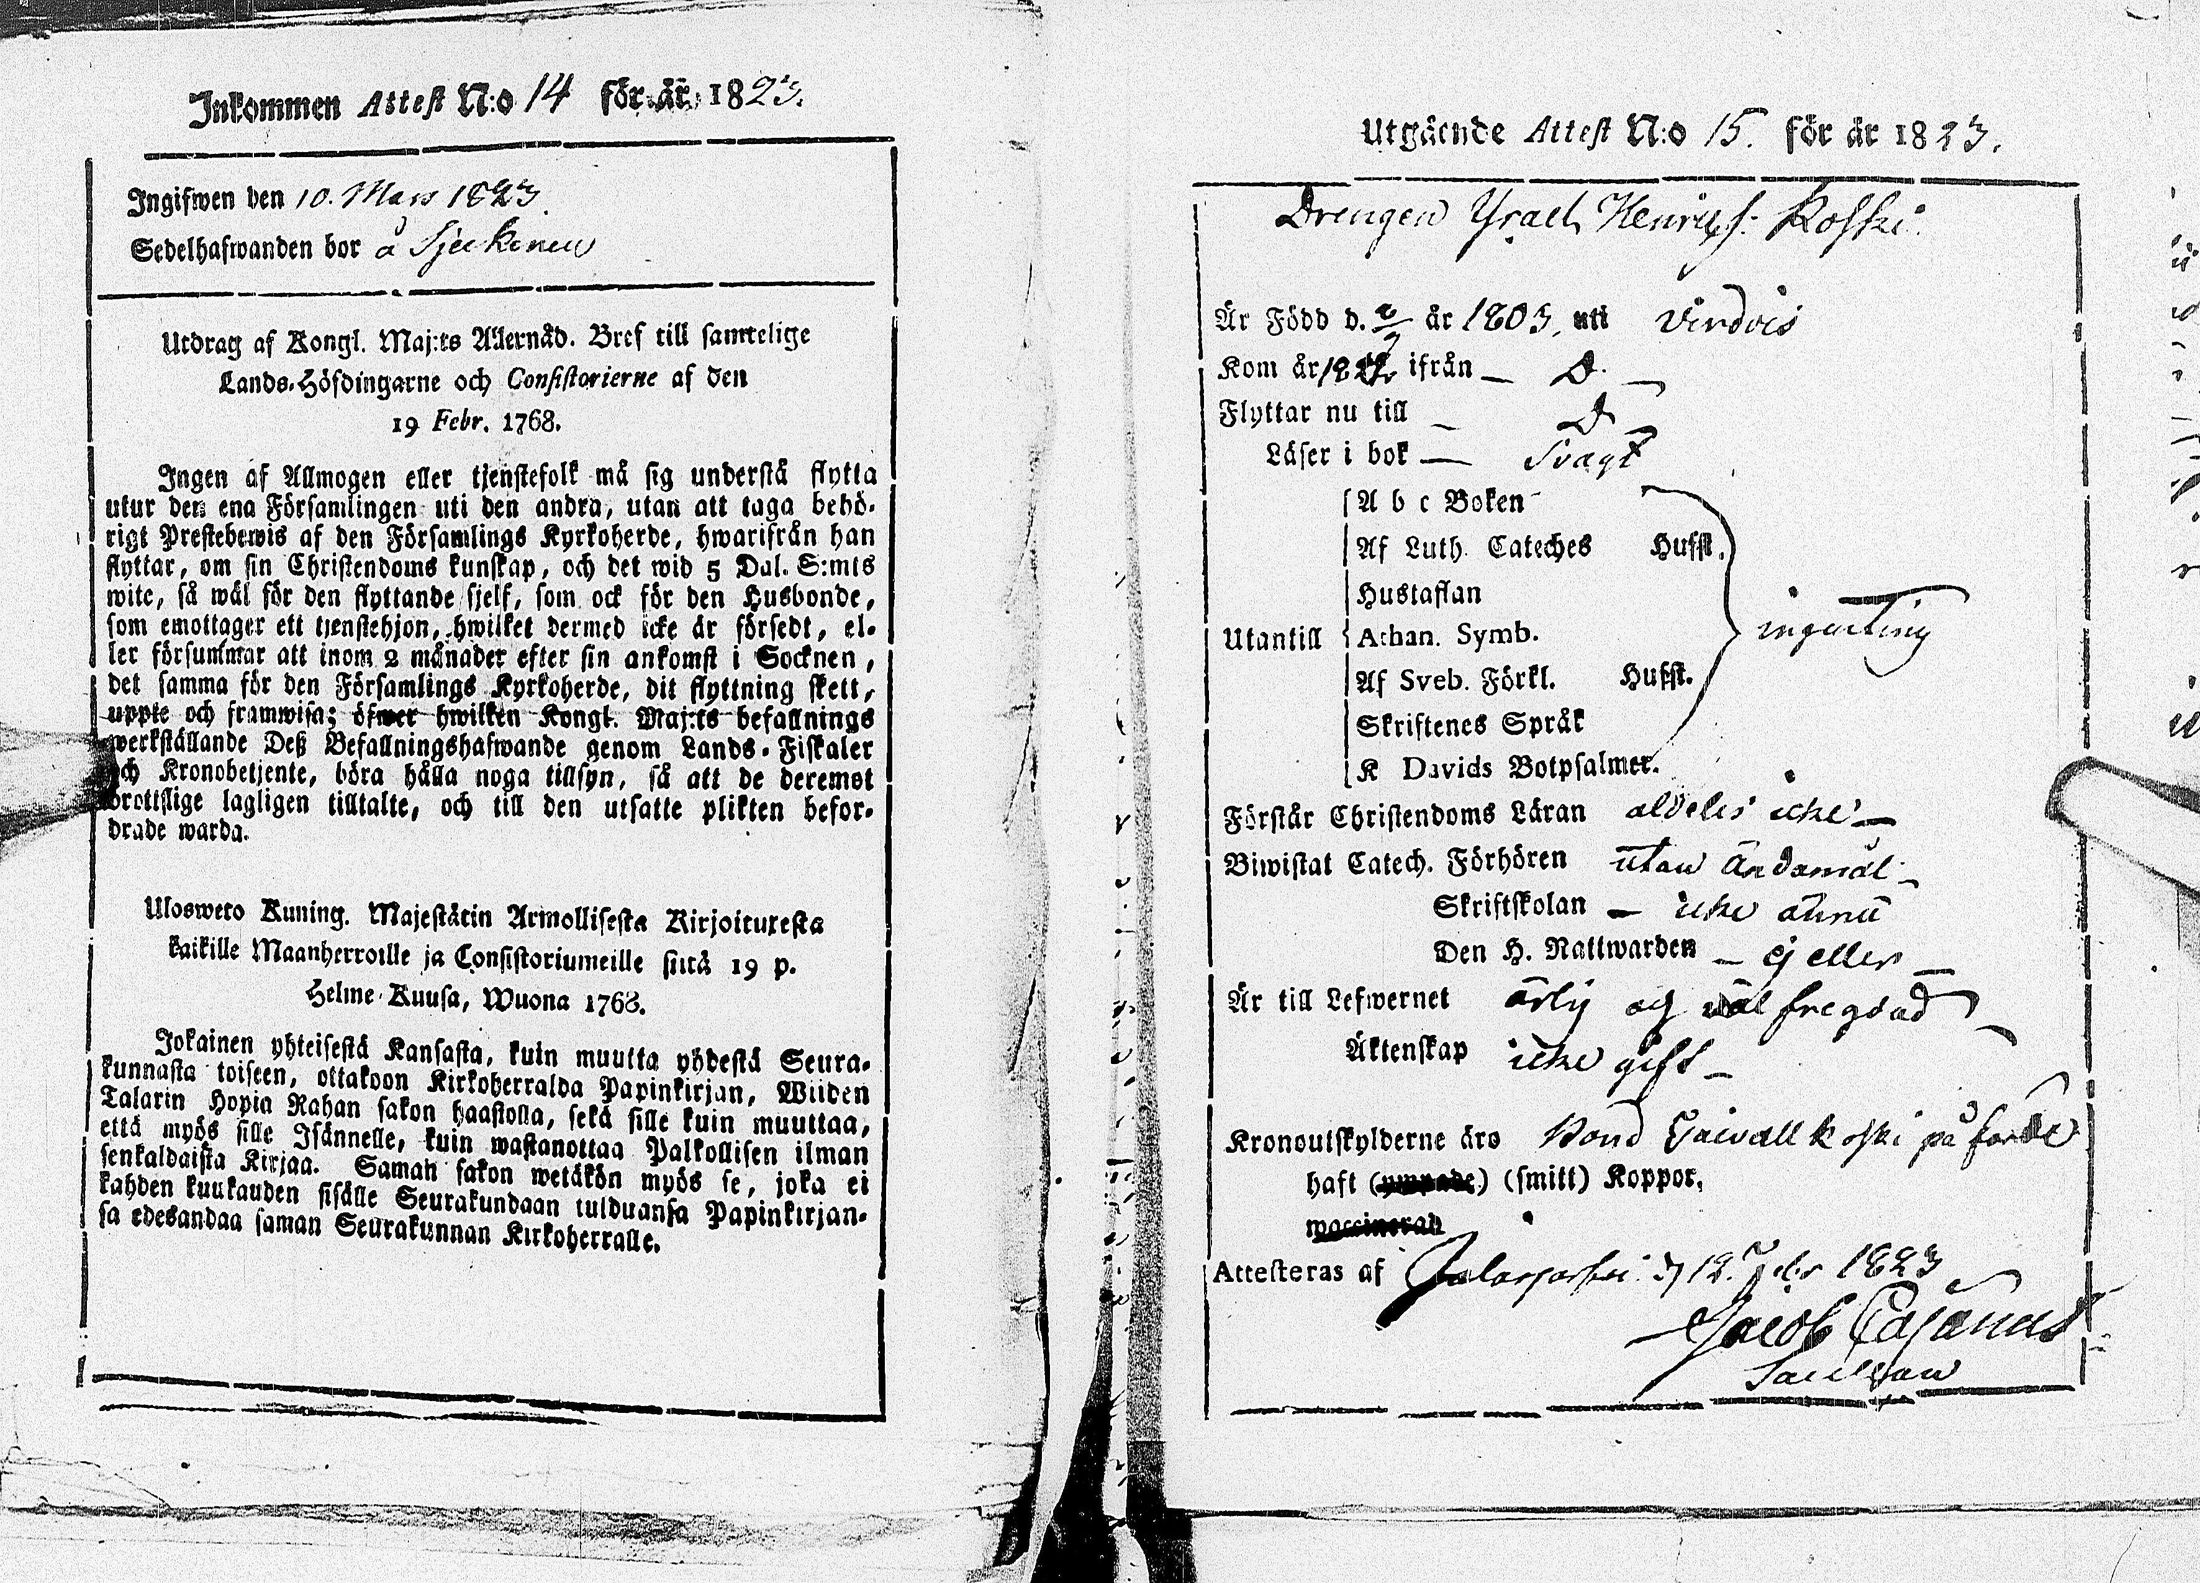 Inkommen Attest N:o 14 för år 1823.
Ingifwen den 10. Mars 1823
Sedelhafwanden bor å
Utdrag af Kongl. Maj:ts Allernåd. Bref till samtelige
Lands-Höfdingarne och Consistorierne af den
19 Febr. 1768.
Ingen af Allmogen eller tjenstefolk må sig understå flytta
utur den ena Församlingen uti den andra, utan att taga behö-
rigt Prestebewis af den Församlings Kyrkoherde, hwarifrån han
flyttar, om sin Christendoms kunskap, och det wid 5 Dal. S:mts
wite, så wäl för den flyttande sjelf, som ock för den Husbonde,
som emottager ett tjenstehjon, hwilket dermed icke är försedt, el-
ler försummar att inom 2 månader efter sin ankomst i Socknen,
det samma för den Församlings Kyrkoherde, dit flyttning skett,
uppte och framwisa; öfwer hwilken Kongl. Maj:ts befallnings
werkställande Deß Befallningshafwande genom Lands-Fiskaler
och Kronobetjente, böra hålla noga tillsyn, så att de deremot
brottslige lagligen tilltalte, och till den utsatte plikten befor-
drade warda.
Ulosweto Kuning. Majestätin Armollisesta Kirjoituxesta
kaikille Maanherroille ja Consistoriumeille siitä 19 p.
Helme-Kuusa, Wuona 1768.
Jokainen yhteisestä Kansasta, kuin muutta yhdestä Seura-
kunnasta toiseen, ottakoon Kirkoherralda Papinkirjan, Wiiden
Talarin Hopia Rahan sakon haastolla, sekä sille kuin muuttaa,
että myös sille Isännelle, kuin wastanottaa Palkollisen ilman
senkaldaista Kirjaa. Saman sakon wetäkön myös se, joka ei
kahden kuukauden sisälle Seurakundaan tulduansa Papinkirjan-
sa edesandaa saman Seurakunnan Kirkoherralle.
Utgående Attest N:o 15. för år 1823.
Drengen Ysrael Henrics. Koski.
Är Född d. år 1803, uti Virdois
Kom år ifrån — D. —
Flyttar nu till — D
Läser i bok — Svagt
A b c Boken
Af Luth. Cateches Hufst.
Hustaflan
Utantill Athan. Symb. ingenting
Af Sveb. Förkl. Hufst.
Skriftenes Språk
K Davids Botpsalmer.
Förstår Christendoms Läran aldeles icke —
Biwistat Catech. Förhören utan Ändamål —
Skriftskolan — icke ännu
Den H. Nattwarden — ej eller —
Är till Lefwernet ärlig och väl fregdad —
Äktenskap icke gift —
Kronoutskylderne äro Koski på
haft (ympade) (smitt) Koppor,
waccinerad
Attesteras af 12. Febr 1823
Jacob Cajanus